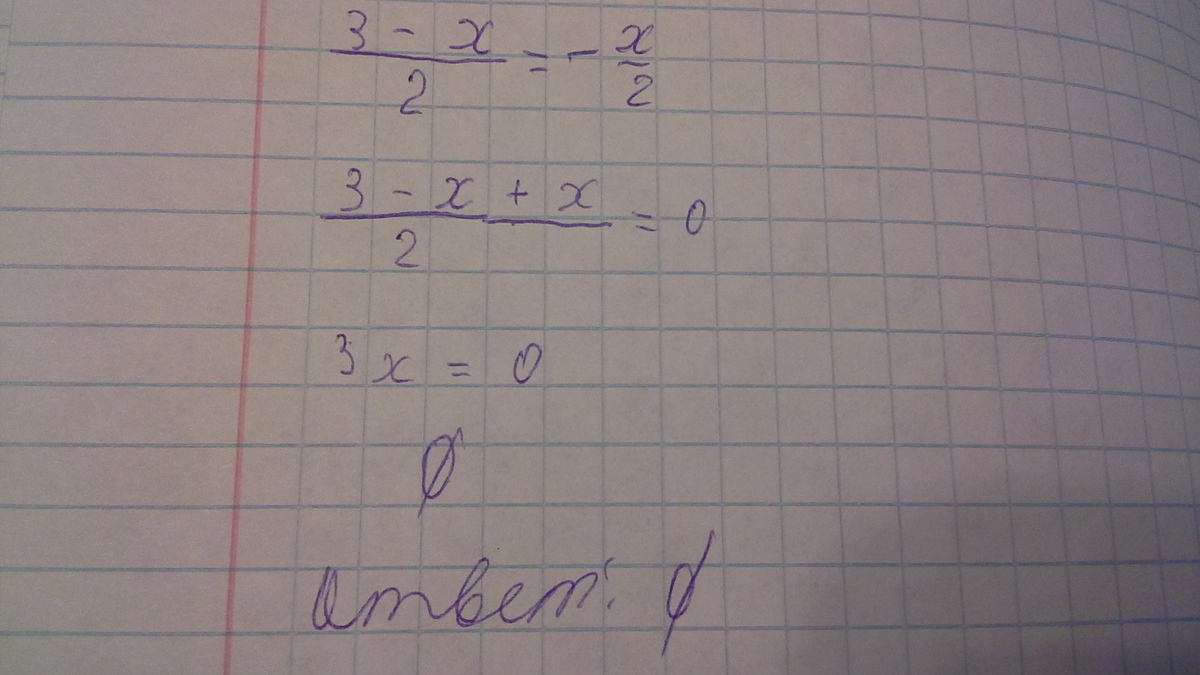 3 - x / 2 = - x / 2
3 - x + x / 2 = 0
3x = 0
∅
Ответ: ∅